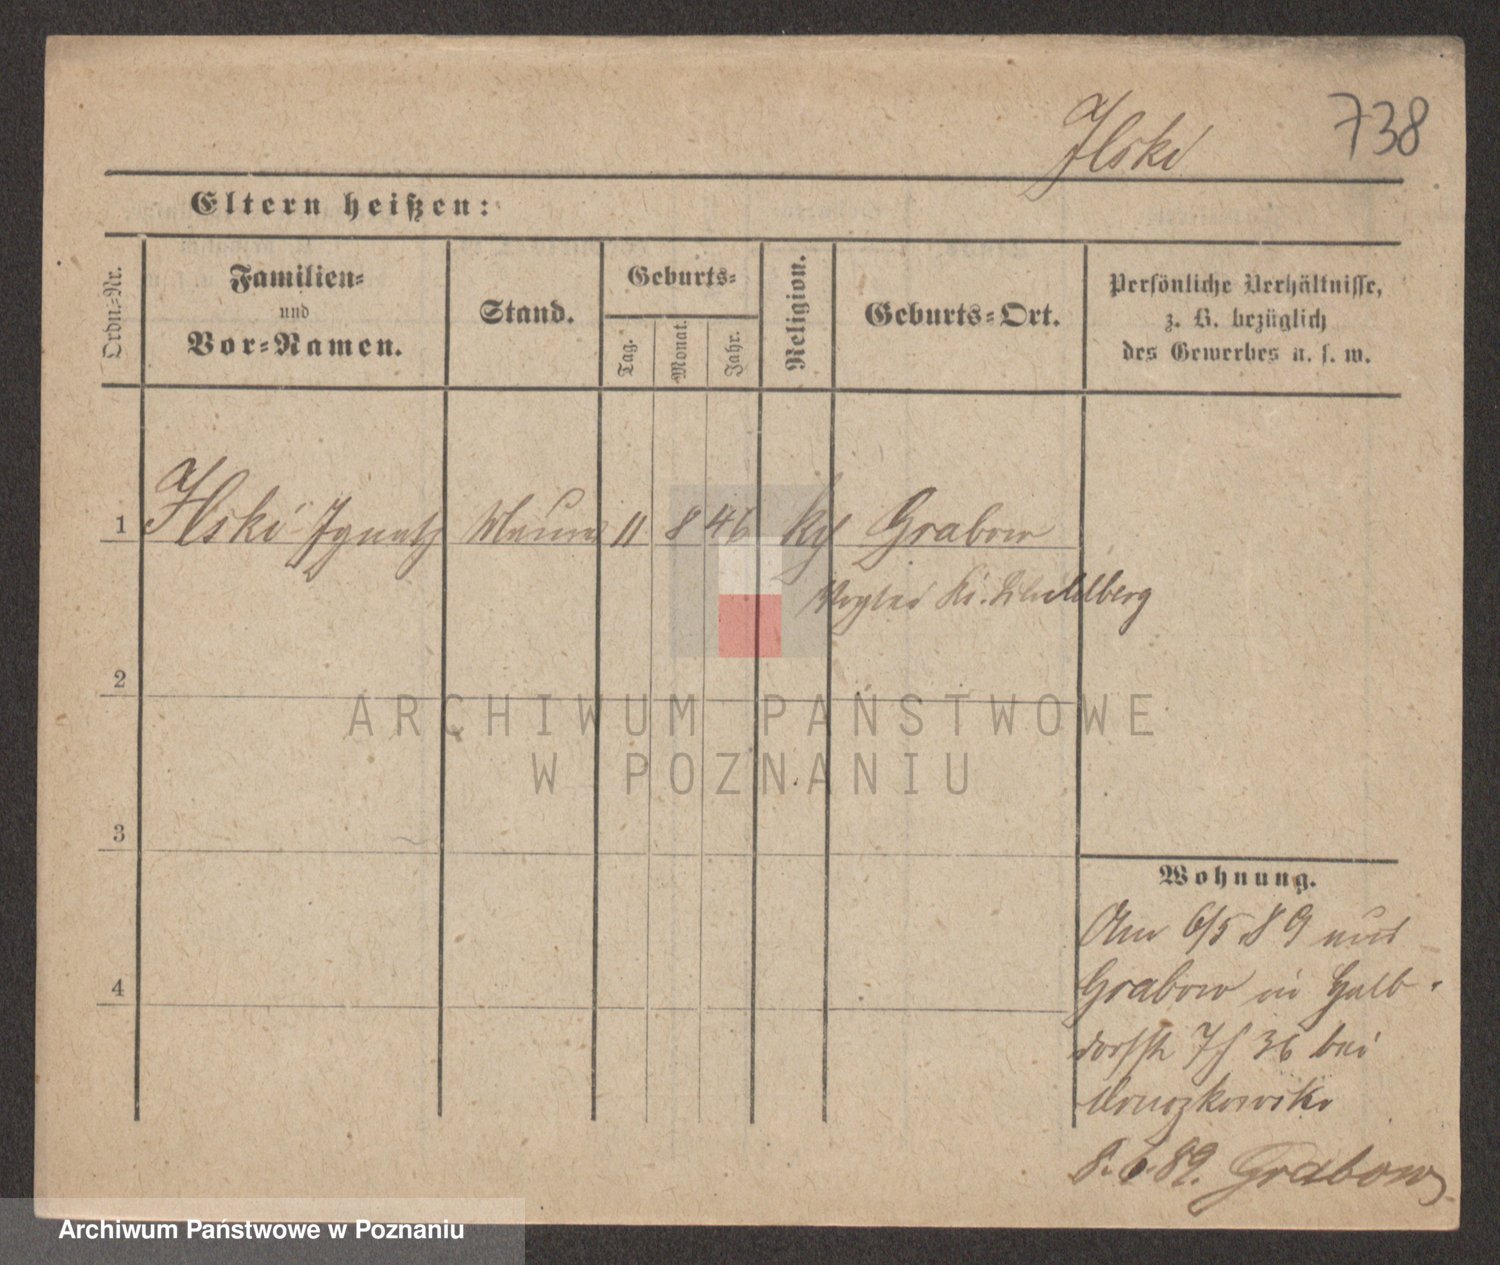 Ilski 738
Eltern heißen:
Ordn.=Nr.
Familien=
und
Vor=Namen.
Stand.
Geburts=
Tag.
Monat.
Jahr.
Religion.
Geburts=Ort.
Persönliche Verhältnisse,
z. B. bezüglich
des Gewerbes u. s. w.
1 Ilski Ignatz Maurer 11 8 46 Grabow
Kr. Schildberg
2
ARCHIWUM PAŃSTWOWE
W POZNANIU
3
4
Wohnung.
Am 6/5 89 aus
Grabow in Halb-
dorfstr 36 bei
8.6.89. Grabow
Archiwum Państwowe w Poznaniu